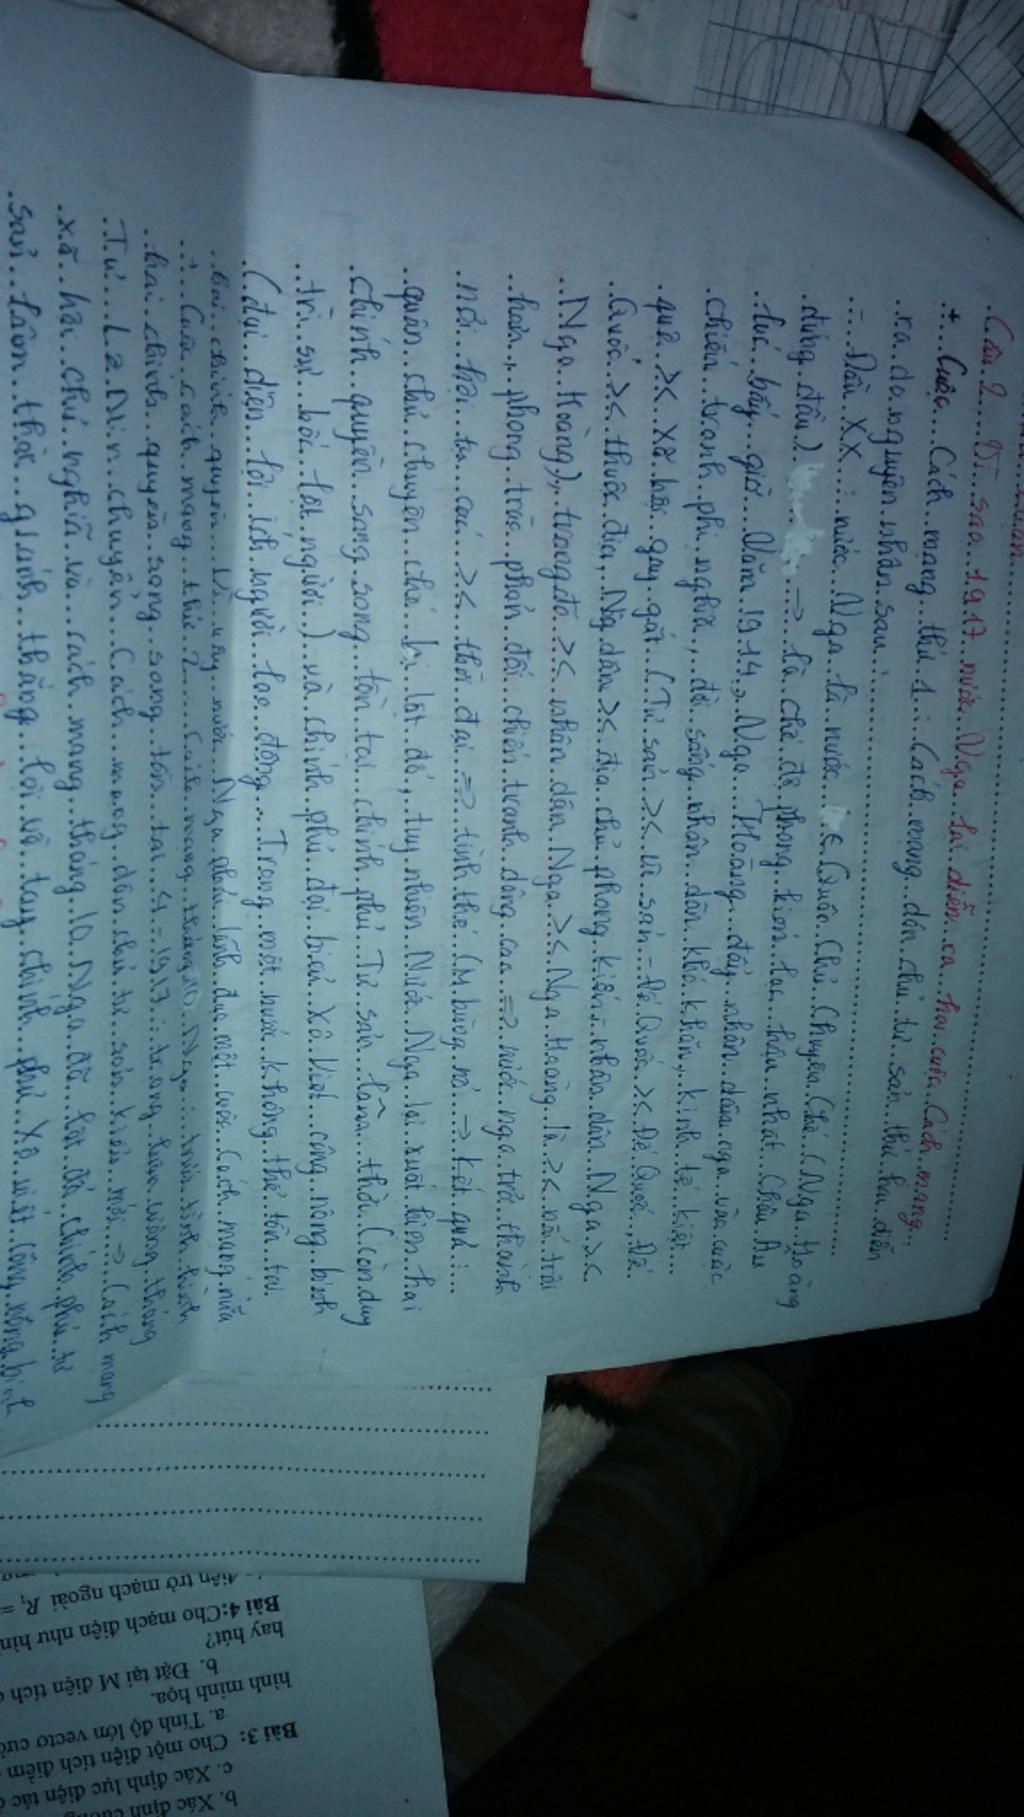 Câu 2: Vì sao 1917 nước Nga lại diễn ra hai cuộc Cách mạng
+ Cuộc Cách mạng thứ 1: Cách mạng dân chủ tư sản thứ hai diễn
ra do nguyên nhân sau:
- Đầu XX: nước Nga là nước Quân Chủ Chuyên Chế (Nga Hoàng
đứng đầu) → là chế độ phong kiến lạc hậu nhất Châu Âu
lúc bấy giờ. Năm 1914, Nga Hoàng đẩy nhân dân nga vào cuộc
chiến tranh phi nghĩa, đời sống nhân dân khó khăn, kinh tế kiệt
quệ >< xã hội gay gắt (Tư sản >< vô sản - Đế Quốc >< Đế Quốc, Đế
Quốc >< thuộc địa, Ng dân >< địa chủ phong kiến, nhân dân Nga ><
Nga Hoàng), trong đó >< nhân dân Nga >< Nga Hoàng là >< nổi trội
hơn, phong trào phản đối chiến tranh dâng cao => nước nga trở thành
nơi hội tụ các >< thời đại => tình thế CM bùng nổ → kết quả:
quân chủ chuyên chế bị lật đổ, tuy nhiên Nước Nga lại xuất hiện hai
chính quyền song song tồn tại: chính phủ Tư sản lâm thời (còn duy
trì sự bóc lột người) và chính phủ đại biểu Xô Viết công nông binh
(đại diện lợi ích người lao động. Trong một nước không thể tồn tại
hai chính quyền. Vì vậy nước Nga phải lãnh đạo một cuộc Cách mạng nữa
+ Cuộc cách mạng thứ 2: Cách mạng tháng 10 Nga: trước tình hình
hai chính quyền song song tồn tại 4-1917: trong luận cương tháng
Tư Lê Nin chuyển Cách mạng dân chủ tư sản kiểu mới => Cách mạng
xã hội chủ nghĩa và cách mạng tháng 10 Nga đã lật đổ chính phủ tư
sản lâm thời giành thắng lợi về tay chính phủ Xô viết công nông binh
b. Xác định
c. Xác định lực điện tác
Bài 3: Cho một điện tích điểm
a. Tính độ lớn vectơ
hình minh họa.
b. Đặt tại M điện tích
hay hút?
Bài 4: Cho mạch điện như
điện trở mạch ngoài R₁ =